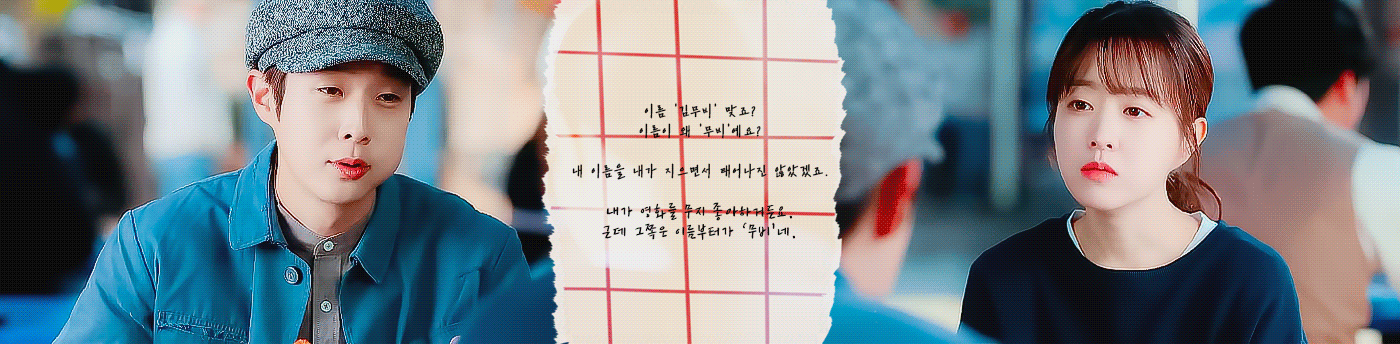 이름 '김무비' 맞죠?
이름이 왜 '무비'에요?
내 이름을 내가 지으면서 태어나진 않았겠죠.
내가 영화를 무지 좋아하거든요.
근데 그쪽은 이름부터가 '무비'네.